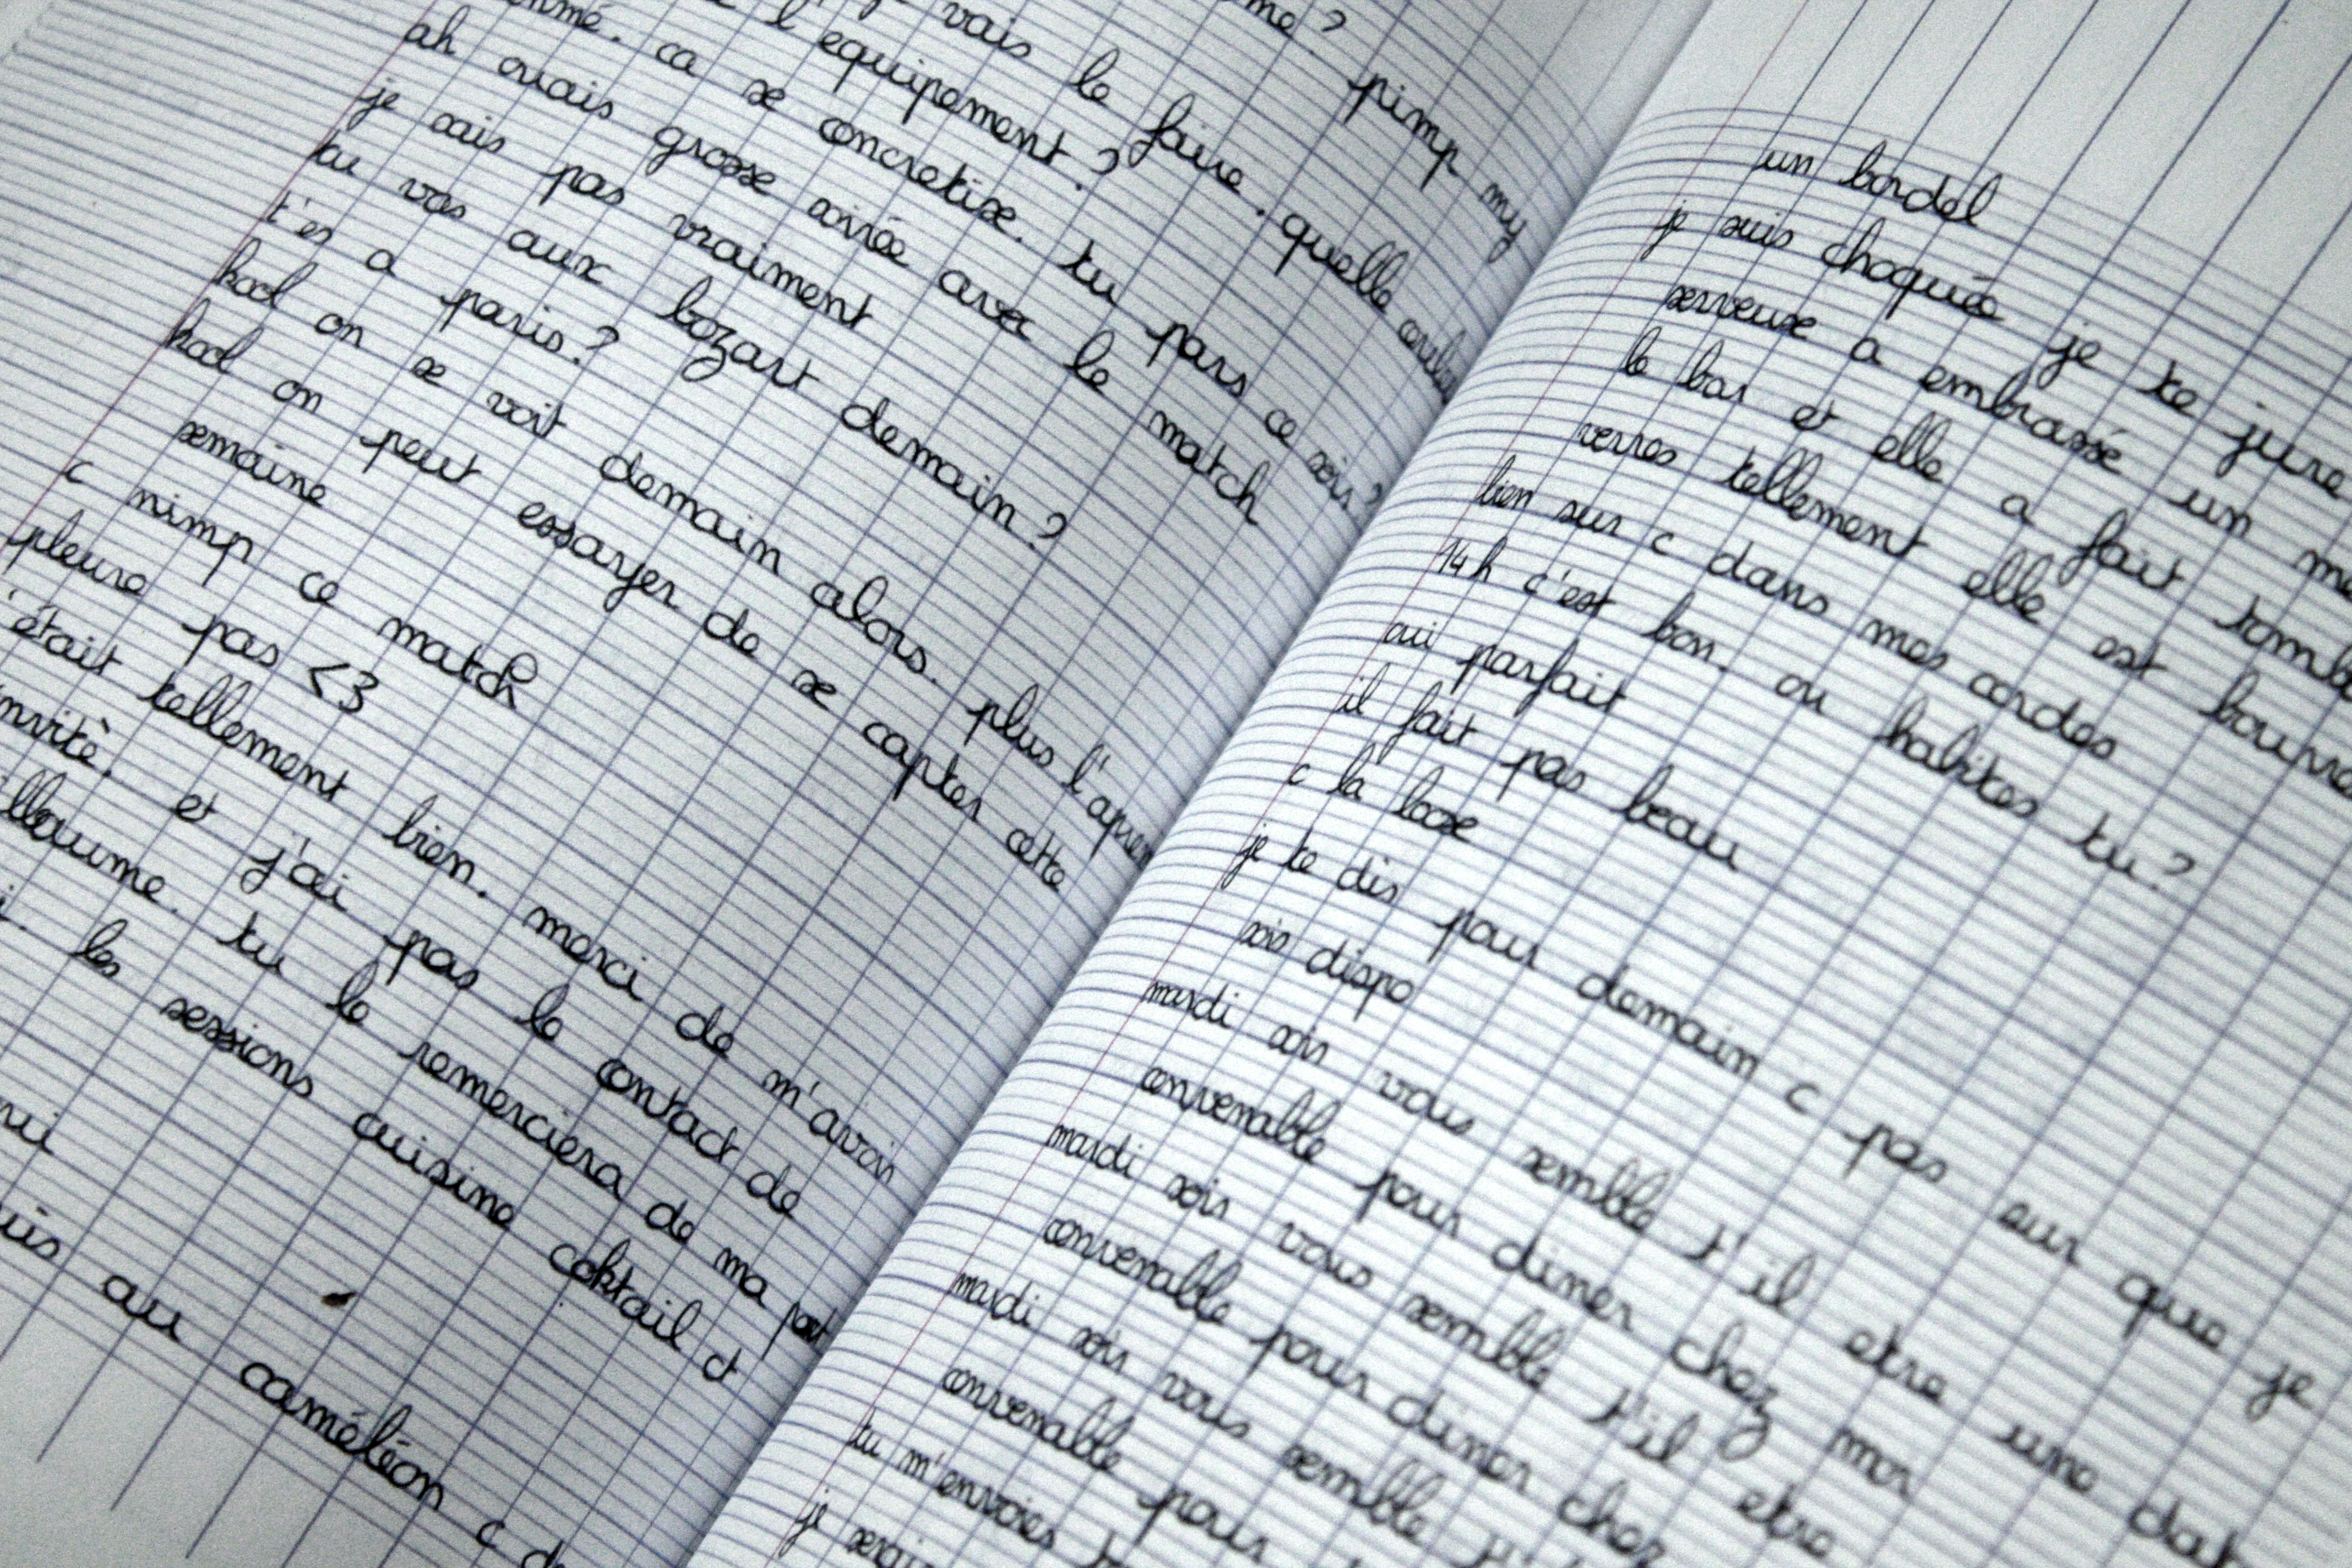 me ? pimp my
vais le faire. quelle
l'equipement ?
ca se concretise. tu pars ce soir ?
ah ouais grosse soirée avec le match
je sais pas vraiment
tu vas aux bozart demain ?
t'es a paris ?
kool on se voit demain alors. plus l'aprem
kool on peut essayer de se capter cette
semaine
c nimp ce match
pleure pas <3
'était tellement bien. merci de m'avoir
invitè. et j'ai pas le contact de
illaume. tu le remerciera de ma part
les sessions cuisine coktail ct
oui
suis au caméléon c
un bordel
je suis choquée je te jure
serveuse a embrassé un
le bar et elle a fait tomb
verres tellement elle est bourré
bien sur c dans mes cordes
14h c'est bon. ou habites tu ?
oui parfait
il fait pas beau
c la loose
je te dis pour demain c pas sur que je
sois dispo
mardi soir vous semble t'il etre une dat
convenable pour diner chez moi
mardi soir vous semble t'il etre
convenable pour diner chez
mardi soir vous semble
convenable pour
tu m'envoies
je serai